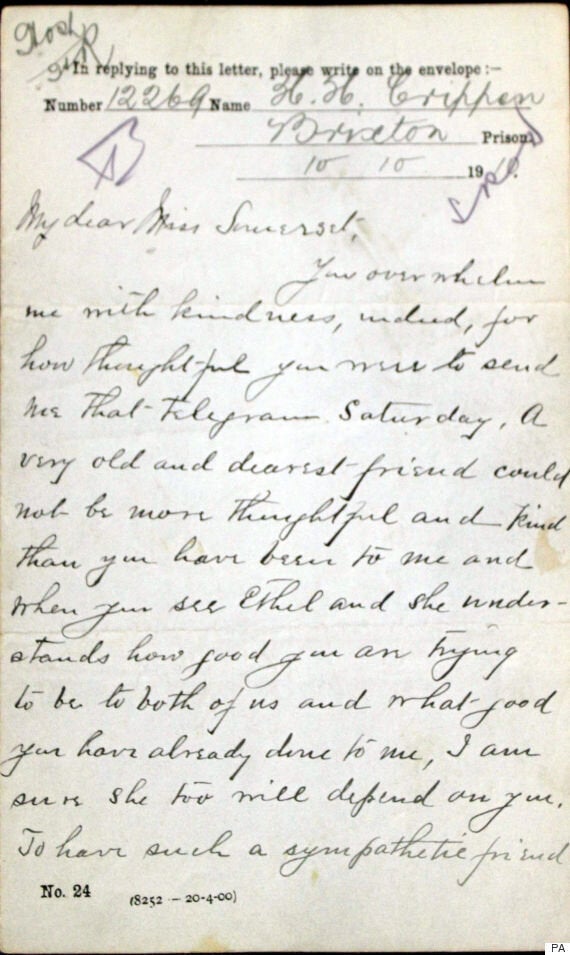 In replying to this letter, please write on the envelope :—
Number 12269 Name H. H. Crippen
Brixton Prison.
10 10 1910.
My dear Miss Somerset,
You overwhelm
me with kindness, indeed, for
how thoughtful you were to send
me that telegram Saturday. A
very old and dearest friend could
not be more thoughtful and kind
than you have been to me and
when you see Ethel and she under-
stands how good you are trying
to be to both of us and what good
you have already done to me, I am
sure she too will depend on you.
To have such a sympathetic friend
No. 24 (8252 — 20-4-00)
PA